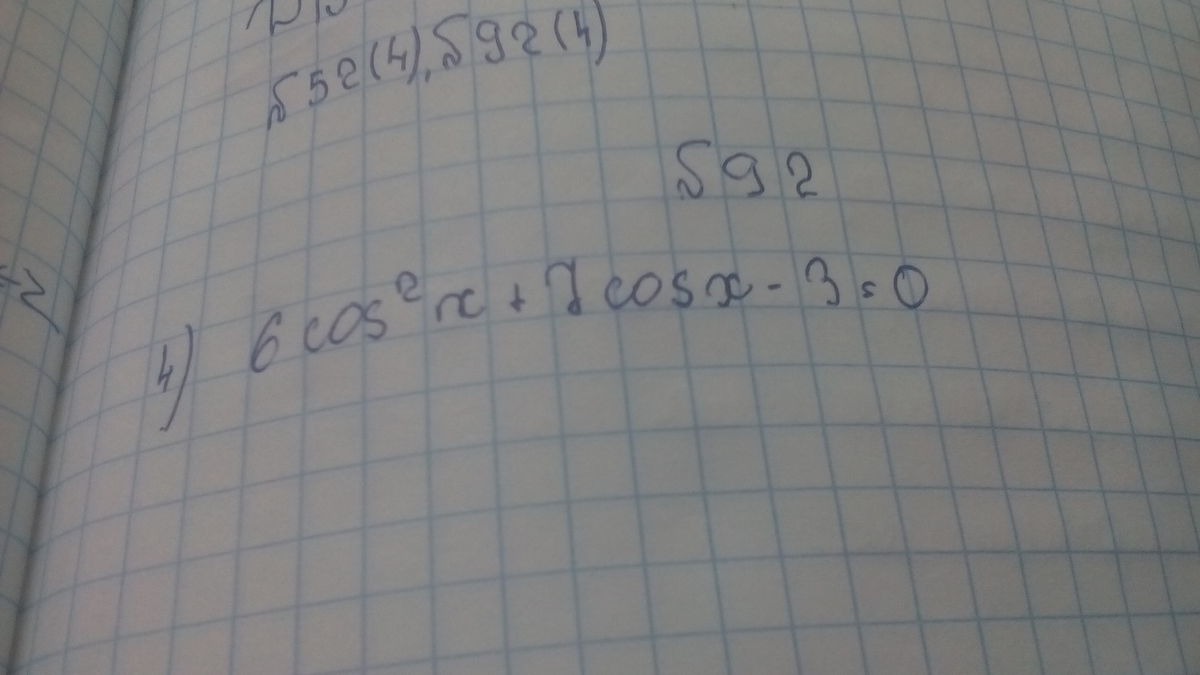 552(4), 592(4)
592
4) 6cos²x + 7cosx - 3 = 0